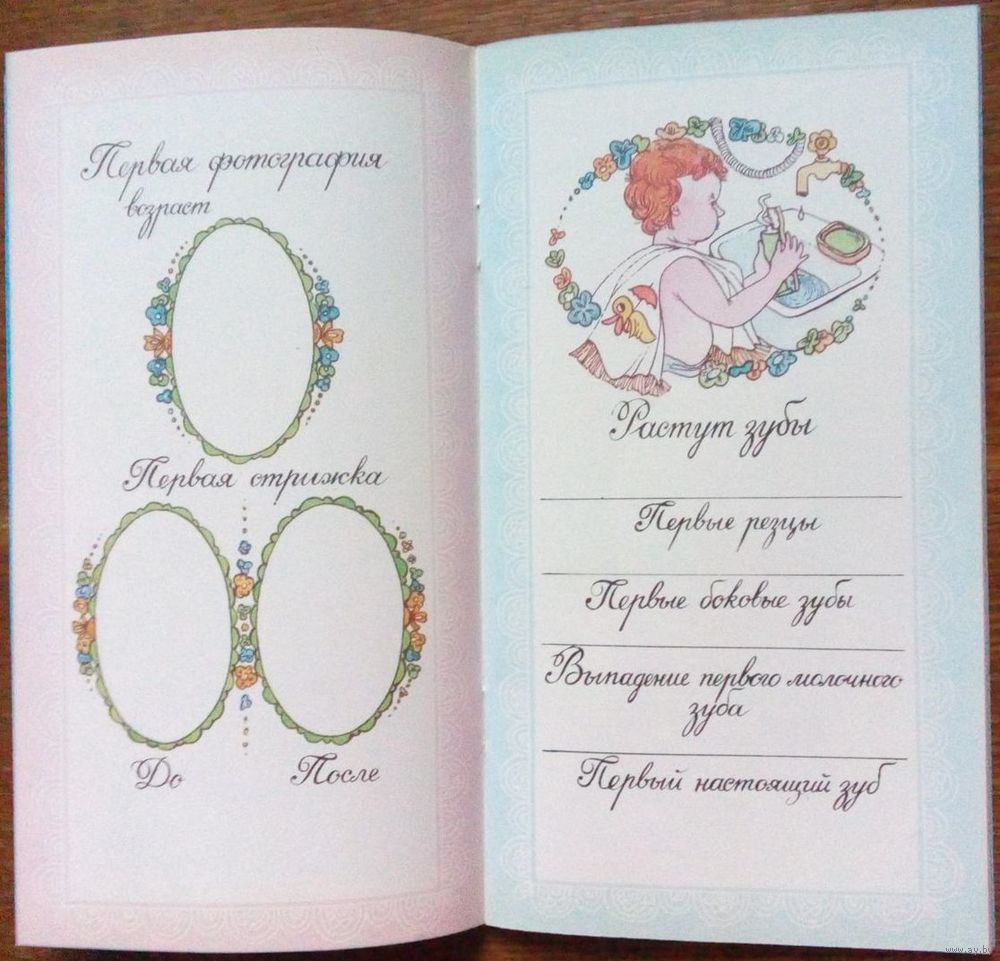 Первая фотография
возраст
Первая стрижка
До
После
Растут зубы
Первые резцы
Первые боковые зубы
Выпадение первого молочного
зуба
Первый настоящий зуб
www.ay.by